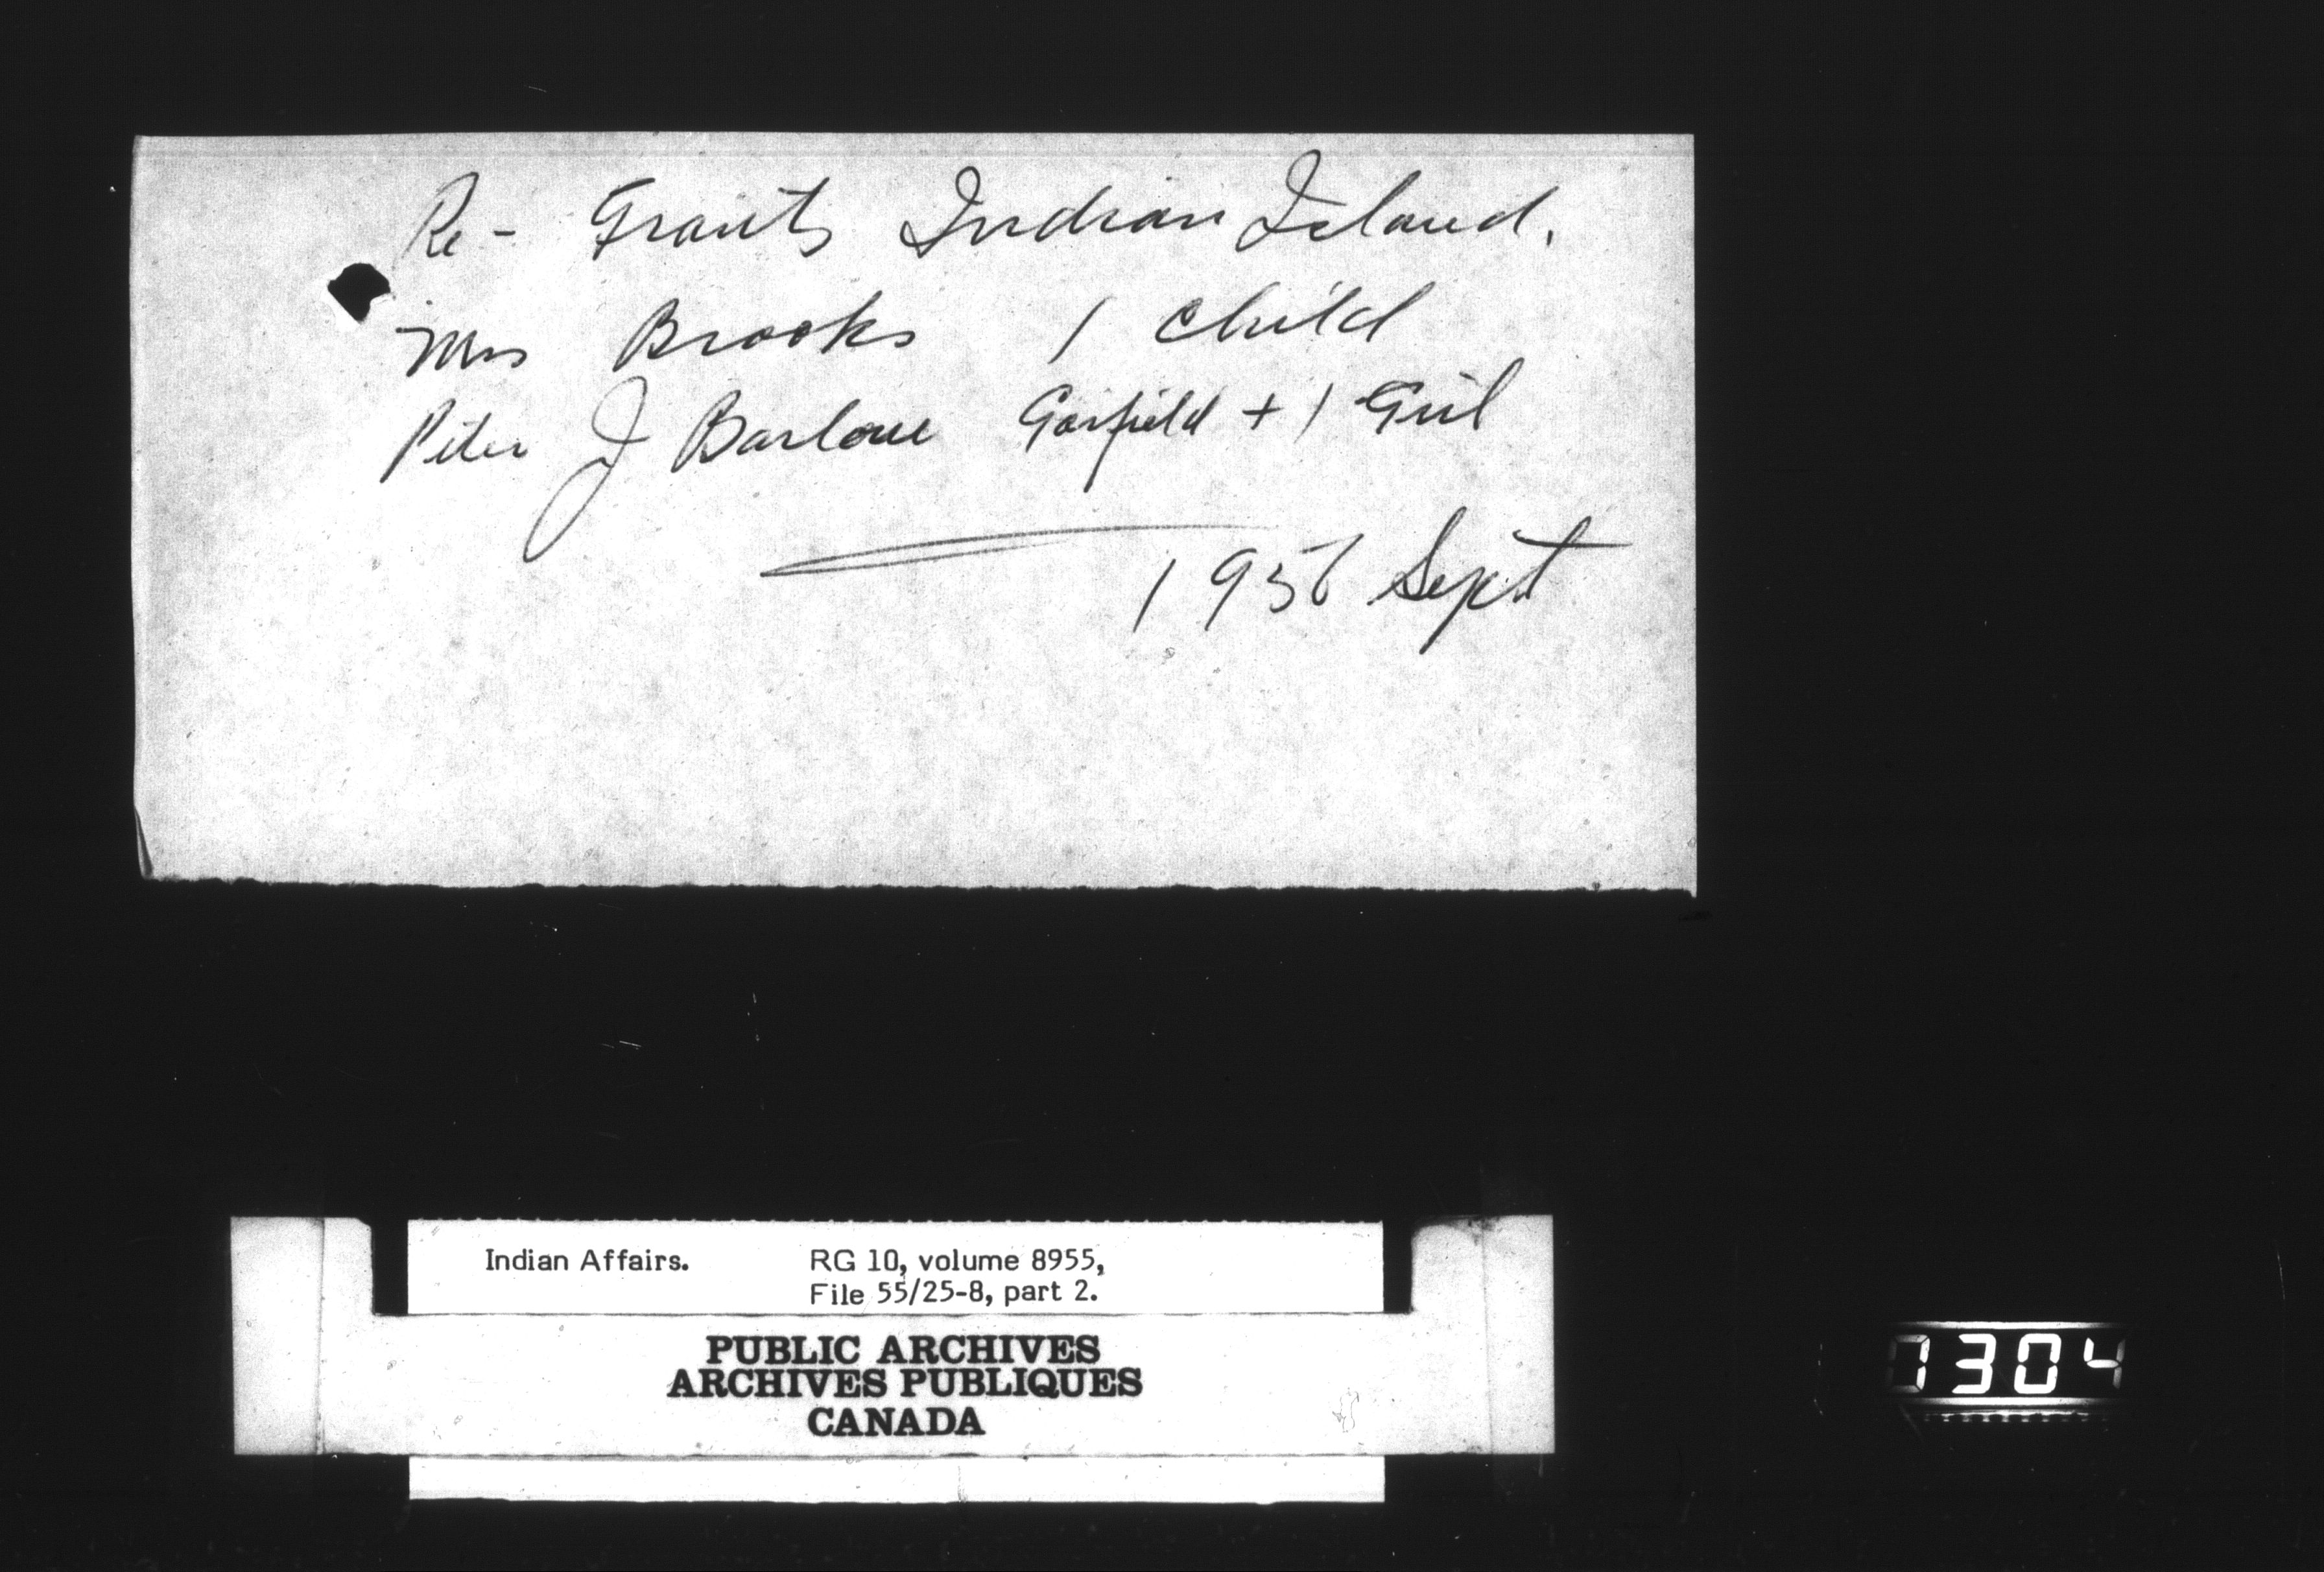 Re - Grants Indian Island.
Mrs Brooks 1 child
Peter J Barlow Garfield + 1 Girl
1956 Sept
Indian Affairs. RG 10, volume 8955,
File 55/25-8, part 2.
PUBLIC ARCHIVES
ARCHIVES PUBLIQUES
CANADA
7304